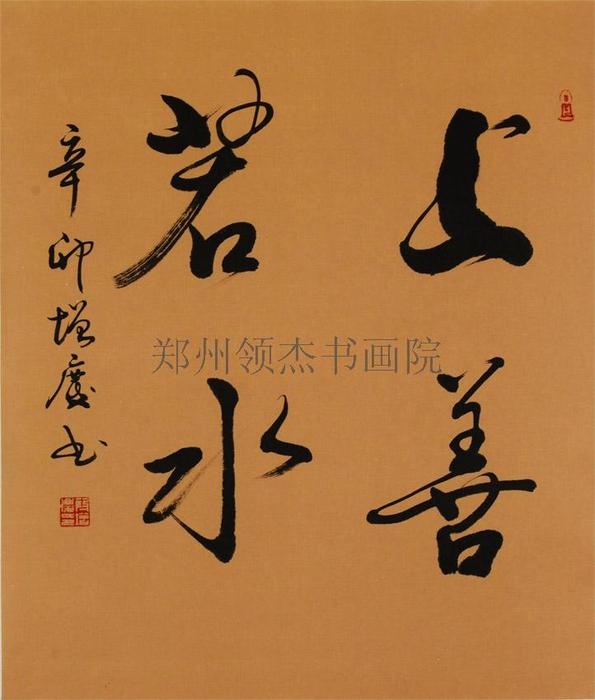 上善
若水
辛卯增庆书
郑州领杰书画院